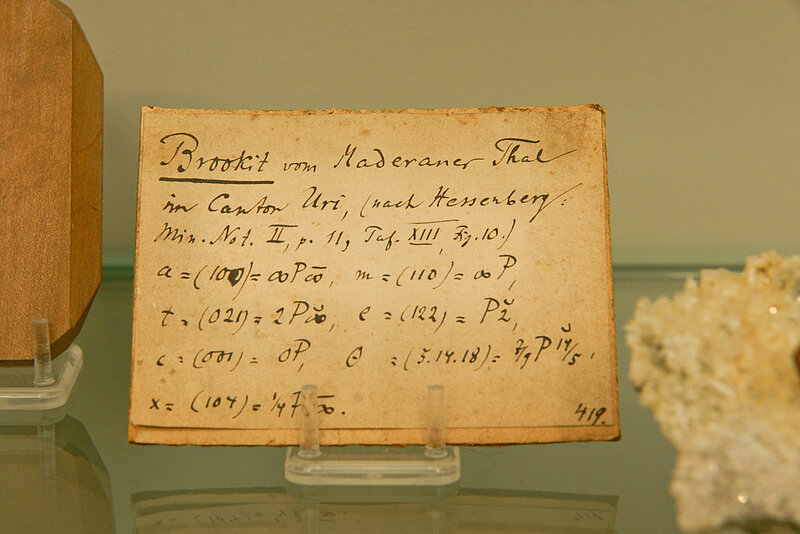 Brookit vom Maderaner Thal
im Canton Uri, (nach Hessenberg:
Min. Not. II, p. 11, Taf. XIII, Fg. 10.)
a = (100) = ∞P∞̄, m = (110) = ∞P,
t = (021) = 2P∞̆, e = (122) = P2̆,
c = (001) = 0P, Θ = (5.14.18) = 7/9 P 14̆/5,
x = (104) = 1/4 P∞̄.
419.